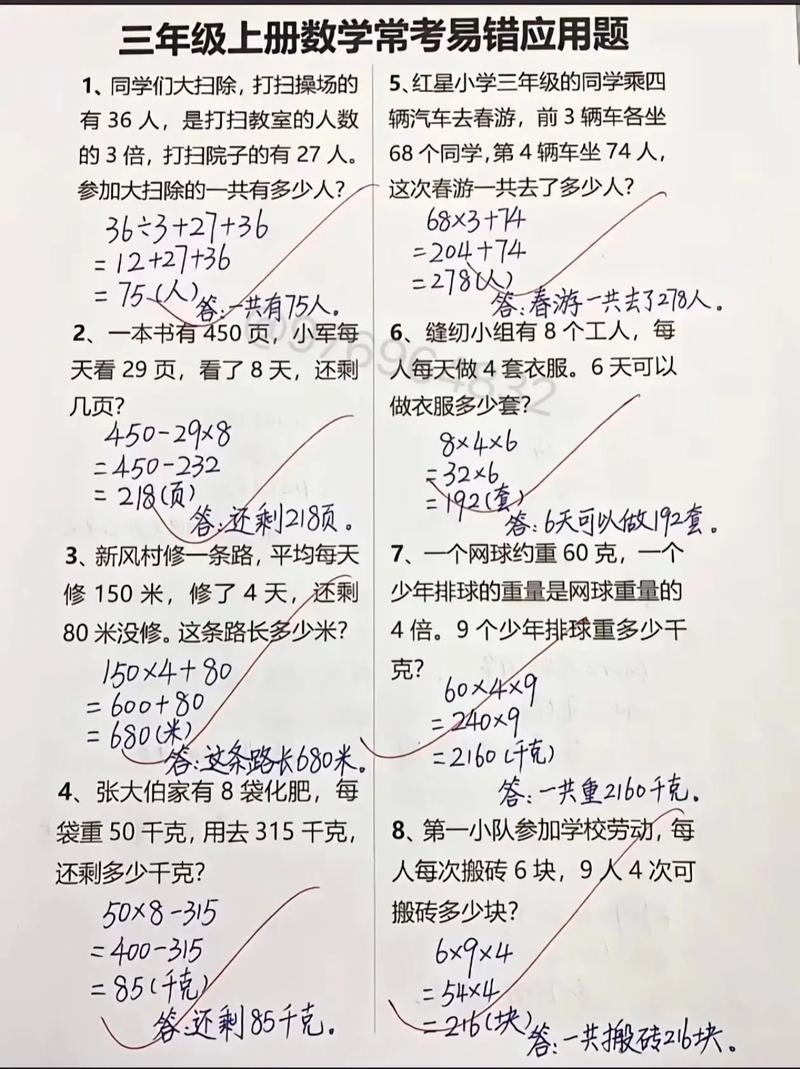 三年级上册数学常考易错应用题
1、同学们大扫除，打扫操场的
有 36 人，是打扫教室的人数
的 3 倍，打扫院子的有 27 人。
参加大扫除的一共有多少人？
36÷3+27+36
=12+27+36
=75(人)
答:一共有75人。
2、一本书有 450 页，小军每
天看 29 页，看了 8 天，还剩
几页？
450-29×8
=450-232
=218(页)
答:还剩218页。
3、新风村修一条路，平均每天
修 150 米，修了 4 天，还剩
80 米没修。这条路长多少米？
150×4+80
=600+80
=680(米)
答:这条路长680米。
4、张大伯家有 8 袋化肥，每
袋重 50 千克，用去 315 千克，
还剩多少千克？
50×8-315
=400-315
=85(千克)
答:还剩85千克。
5、红星小学三年级的同学乘四
辆汽车去春游，前 3 辆车各坐
68 个同学，第 4 辆车坐 74 人，
这次春游一共去了多少人？
68×3+74
=204+74
=278(人)
答:春游一共去了278人.
6、缝纫小组有 8 个工人，每
人每天做 4 套衣服。6 天可以
做衣服多少套？
8×4×6
=32×6
=192(套)
答:6天可以做192套。
7、一个网球约重 60 克，一个
少年排球的重量是网球重量的
4 倍。9 个少年排球重多少千
克？
60×4×9
=240×9
=2160(千克)
答:一共重2160千克。
8、第一小队参加学校劳动，每
人每次搬砖 6 块，9 人 4 次可
搬砖多少块？
6×9×4
=54×4
=216(块)
答:一共搬砖216块。